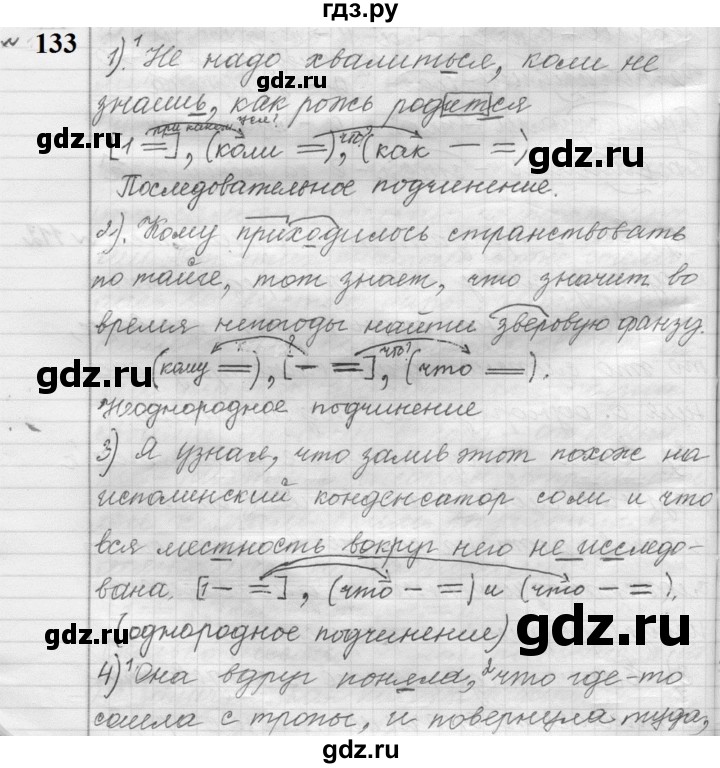 гдз.ру
133
1). ¹Не надо хвалиться, коли не
gdz.ru
знаешь, как рожь родится
gdz.ru gdz.ru
при каком усл.? что?
[1 =], (коли =), (как – =)
Последовательное подчинение.
2). Кому приходилось странствовать
по тайге, тот знает, что значит во
время непогоды найти зверовую фанзу.
gdz.ru gdz.ru
? что?
(кому =), [– =], (что =).
Неоднородное подчинение
3) Я узнал, что залив этот похож на
исполинский конденсатор соли и что
вся местность вокруг него не исследо-
вана. [1 – =], (что – =) и (что – =).
gdz.ru gdz.ru
(однородное подчинение)
4) ¹Она вдруг поняла, ²что где-то
сошла с тропы, и повернула туда,
gdz.ru